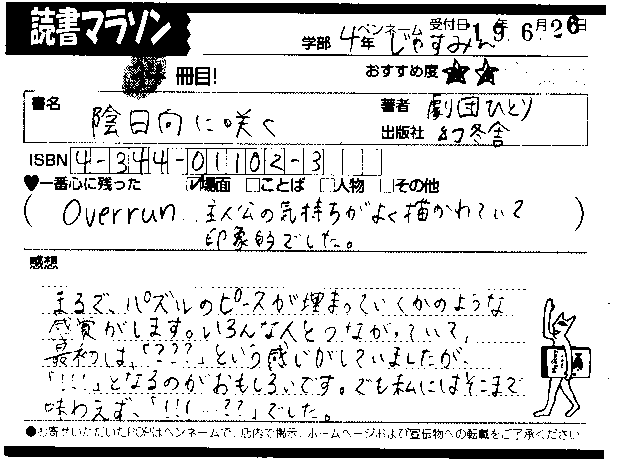 読書マラソン
学部 4年 ペンネーム じゃすみん 受付日 19年 6月 26日
冊目!
おすすめ度 ★ ★
書名 陰日向に咲く
著者 劇団ひとり
出版社 幻冬舎
ISBN 4-344-01102-3
♥一番心に残った ☑場面 □ことば □人物 □その他
( Overrun. 主人公の気持ちがよく描かれていて
印象的でした。 )
感想
まるで、パズルのピースが埋まっていくかのような
感覚がします。いろんな人とつながっていて、
最初は、「???」という感じがしていましたが、
「!!!」となるのがおもしろいです。でも私にはそこまで
味わえず、「!!(…??」でした。
●お寄せいただいたPOPはペンネームで、店内で掲示、ホームページおよび宣伝物への転載をご了承ください